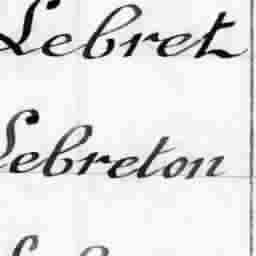 Lebret
Lebreton